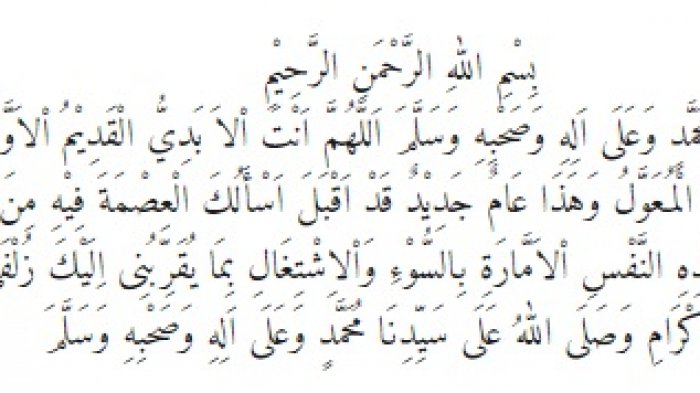 بِسْمِ اللهِ الرَّحْمَنِ الرَّحِيْمِ
وَعَلَى اَلِهِ وَصَحْبِهِ وَسَلَّمَ اَللَّهُمَّ اَنْتَ اْلاَبَدِيُّ الْقَدِيْمُ
الْمُعَوَّلُ وَهَذَا عَامٌ جَدِيْدٌ قَدْ اَقْبَلَ اَسْأَلُكَ الْعِصْمَةَ فِيْهِ مِنَ
النَّفْسِ اْلاَمَّارَةِ بِالسُّوْءِ وَاْلاِشْتِغَالِ بِمَا يُقَرِّبُنِى اِلَيْكَ
وَصَلَى اللهُ عَلَى سَيِّدِنَا مُحَمَّدٍ وَعَلَى اَلِهِ وَصَحْبِهِ وَسَلَّمَ